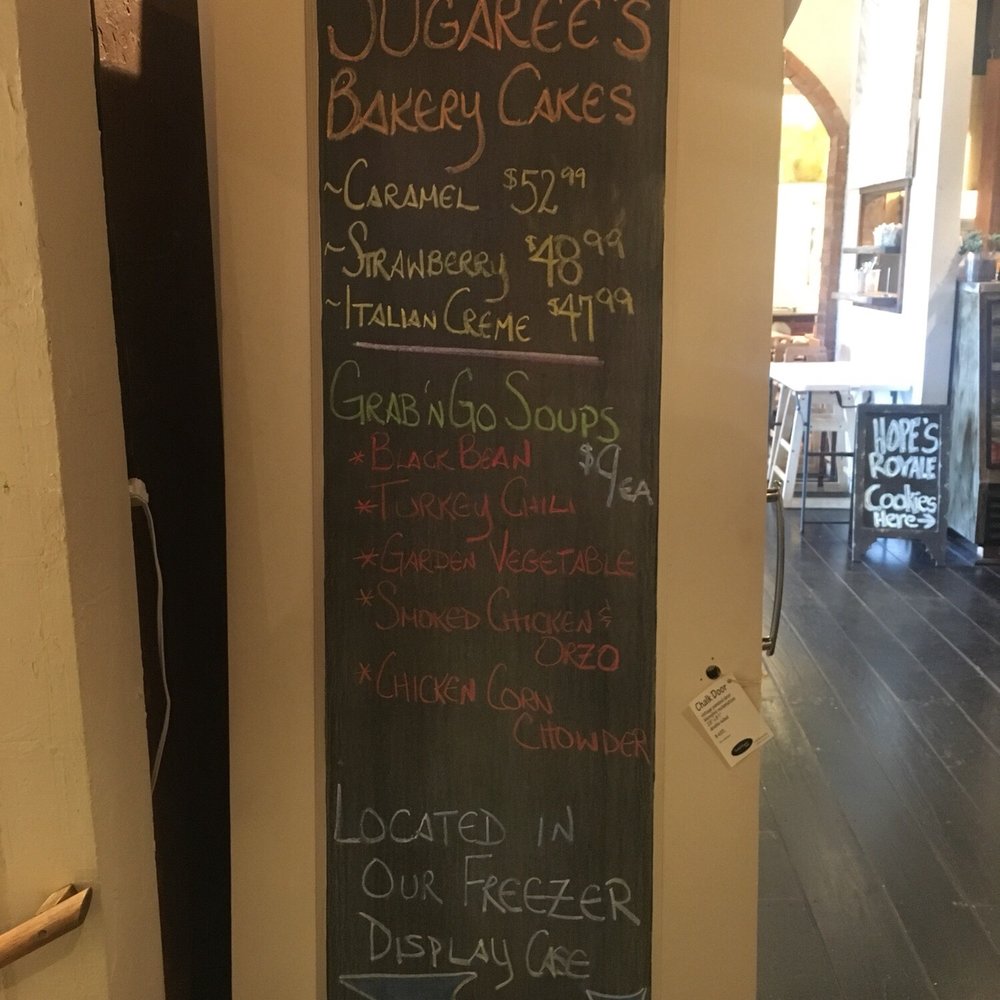 JUGAREE'S
BAKERY CAKES
~CARAMEL $52.99
~STRAWBERRY $48.99
~ITALIAN CREME $47.99
GRAB'N GO SOUPS
*BLACK BEAN $9 EA
*TURKEY CHILI
*GARDEN VEGETABLE
*SMOKED CHICKEN &
ORZO
*CHICKEN CORN
CHOWDER
LOCATED IN
OUR FREEZER
DISPLAY CASE
HOPE'S
ROYALE
Cookies
Here→
Chalk Door